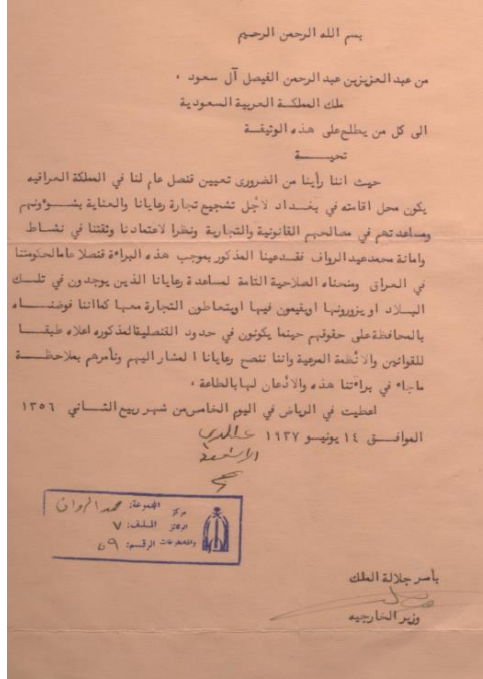 بسم الله الرحمن الرحيم
من عبد العزيز بن عبد الرحمن الفيصل آل سعود ،
ملك المملكة العربية السعودية
الى كل من يطلع على هذه الوثيقة
تحيـــة
حيث اننا رأينا من الضرورى تعيين قنصل عام لنا في المملكة العراقيه
يكون محل اقامته في بغداد لأجل تشجيع تجارة رعايانا والعناية بشؤونهم
ومساعدتهم في مصالحهم القانونية والتجارية ونظرا لاعتمادنا وثقتنا في نشاط
وامانة محمد عيد الرواف فقد عينا المذكور بموجب هذه البراءة قنصلا عاما لحكومتنا
في العراق ومنحناه الصلاحية التامة لمساعدة رعايانا الذين يوجدون في تلك
البلاد او يزورونها او يقيمون فيها او يتعاطون التجارة معها كما اننا فوضناه
بالمحافظة على حقوقهم حينما يكونون في حدود القنصلية المذكوره اعلاه طبقا
للقوانين والأنظمة المرعية واننا ننصح رعايانا المشار اليهم ونأمرهم بملاحظة
ماجاء في براءتنا هذه والاذعان لها بالطاعة ،
اعطيت في الرياض في اليوم الخامس من شهر ربيع الثاني ١٣٥٦
الموافق ١٤ يونيو ١٩٣٧
مركز
الوثائق
والمخطوطات
المجموعة: محمد الرواف
الملف: ٧
الرقم: ٥٩
بأمر جلالة الملك
وزير الخارجيه